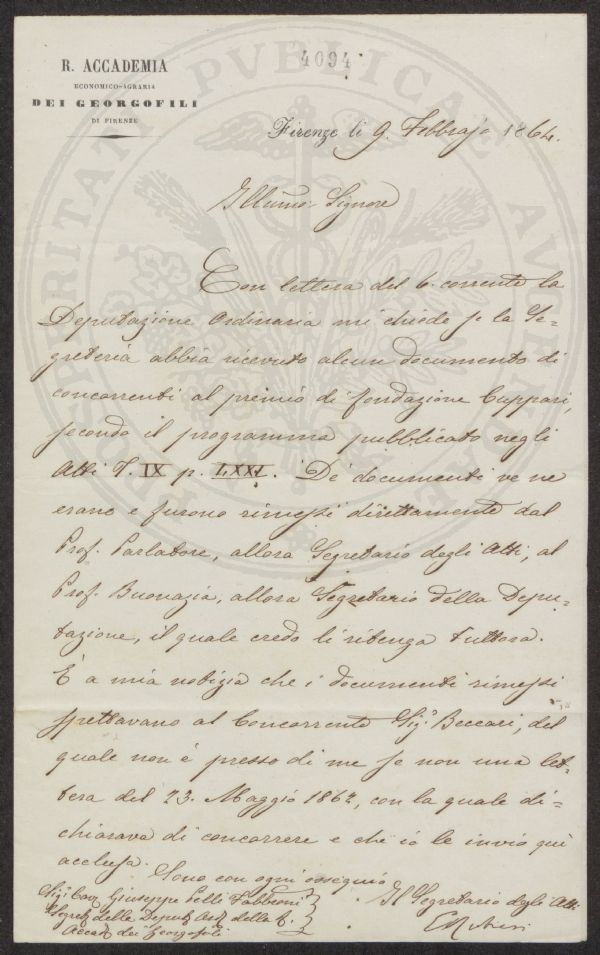 4094
R. ACCADEMIA
ECONOMICO-AGRARIA
DEI GEORGOFILI
DI FIRENZE
PROSPERITATI PVBLICAE AVGENDAE
Firenze li 9. Febbrajo 1864.
Illumo: Signore
Con lettera del 6. corrente la
Deputazione Ordinaria mi chiede se la Se-
greteria abbia ricevuto alcun documento di
concorrenti al premio di fondazione Cuppari,
secondo il programma pubblicato negli
Atti T. IX p. LXXI. De' documenti ve ne
erano e furono rimessi direttamente dal
Prof. Parlatore, allora Segretario degli Atti, al
Prof. Buonazia, allora Segretario della Depu-
tazione, il quale credo li ritenga tuttora.
È a mia notizia che i documenti rimessi
spettavano al Concorrente Sigr. Beccari, del
quale non è presso di me se non una let-
tera del 23. Maggio 1862, con la quale di-
chiarava di concorrere e che io le invio qui
acclusa.
Sono con ogni ossequio
Sigr Cav Giuseppe Pelli Fabbroni
Segret. della Deput. Ord. della R.
Accad. dei Georgofili
Il Segretario degli Atti